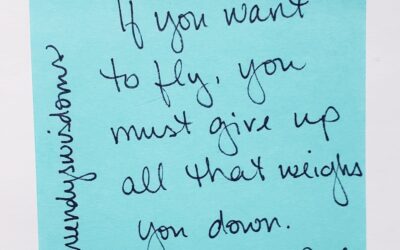 If you want
to fly, you
must give up
all that weighs
you down.